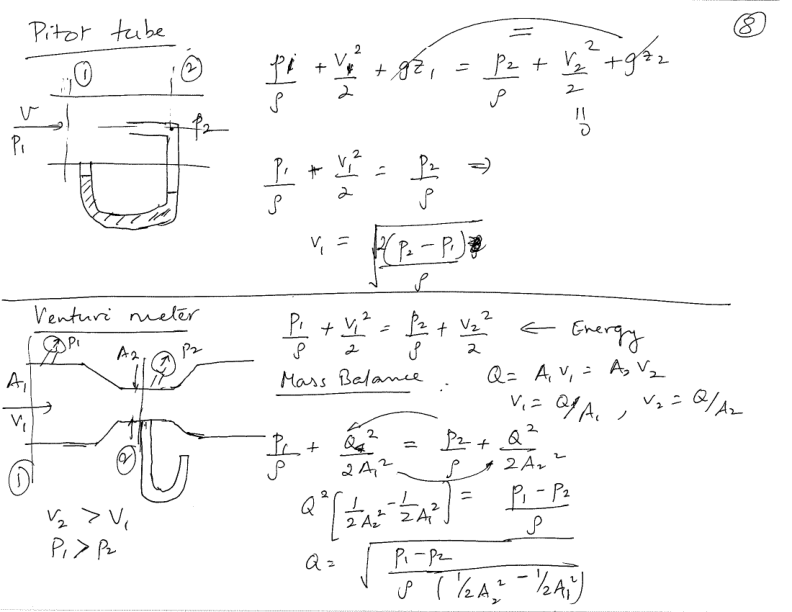 8
Pitot tube
① ②
V
P₁
P₂
p₁/ρ + V₁²/2 + gz₁ = p₂/ρ + V₂²/2 + gz₂
= 0
p₁/ρ + V₁²/2 = p₂/ρ ⇒
V₁ = √(2(p₂ - p₁)/ρ)
Venturi meter
P₁ A₂ P₂
A₁
V₁
① ②
V₂ > V₁
P₁ > P₂
P₁/ρ + V₁²/2 = P₂/ρ + V₂²/2 ← Energy
Mass Balance : Q = A₁V₁ = A₂V₂
V₁ = Q/A₁ , V₂ = Q/A₂
P₁/ρ + Q²/2A₁² = P₂/ρ + Q²/2A₂²
Q² [1/2A₂² - 1/2A₁²] = P₁ - P₂/ρ
Q = √(P₁ - P₂/ρ (1/2A₂² - 1/2A₁²))